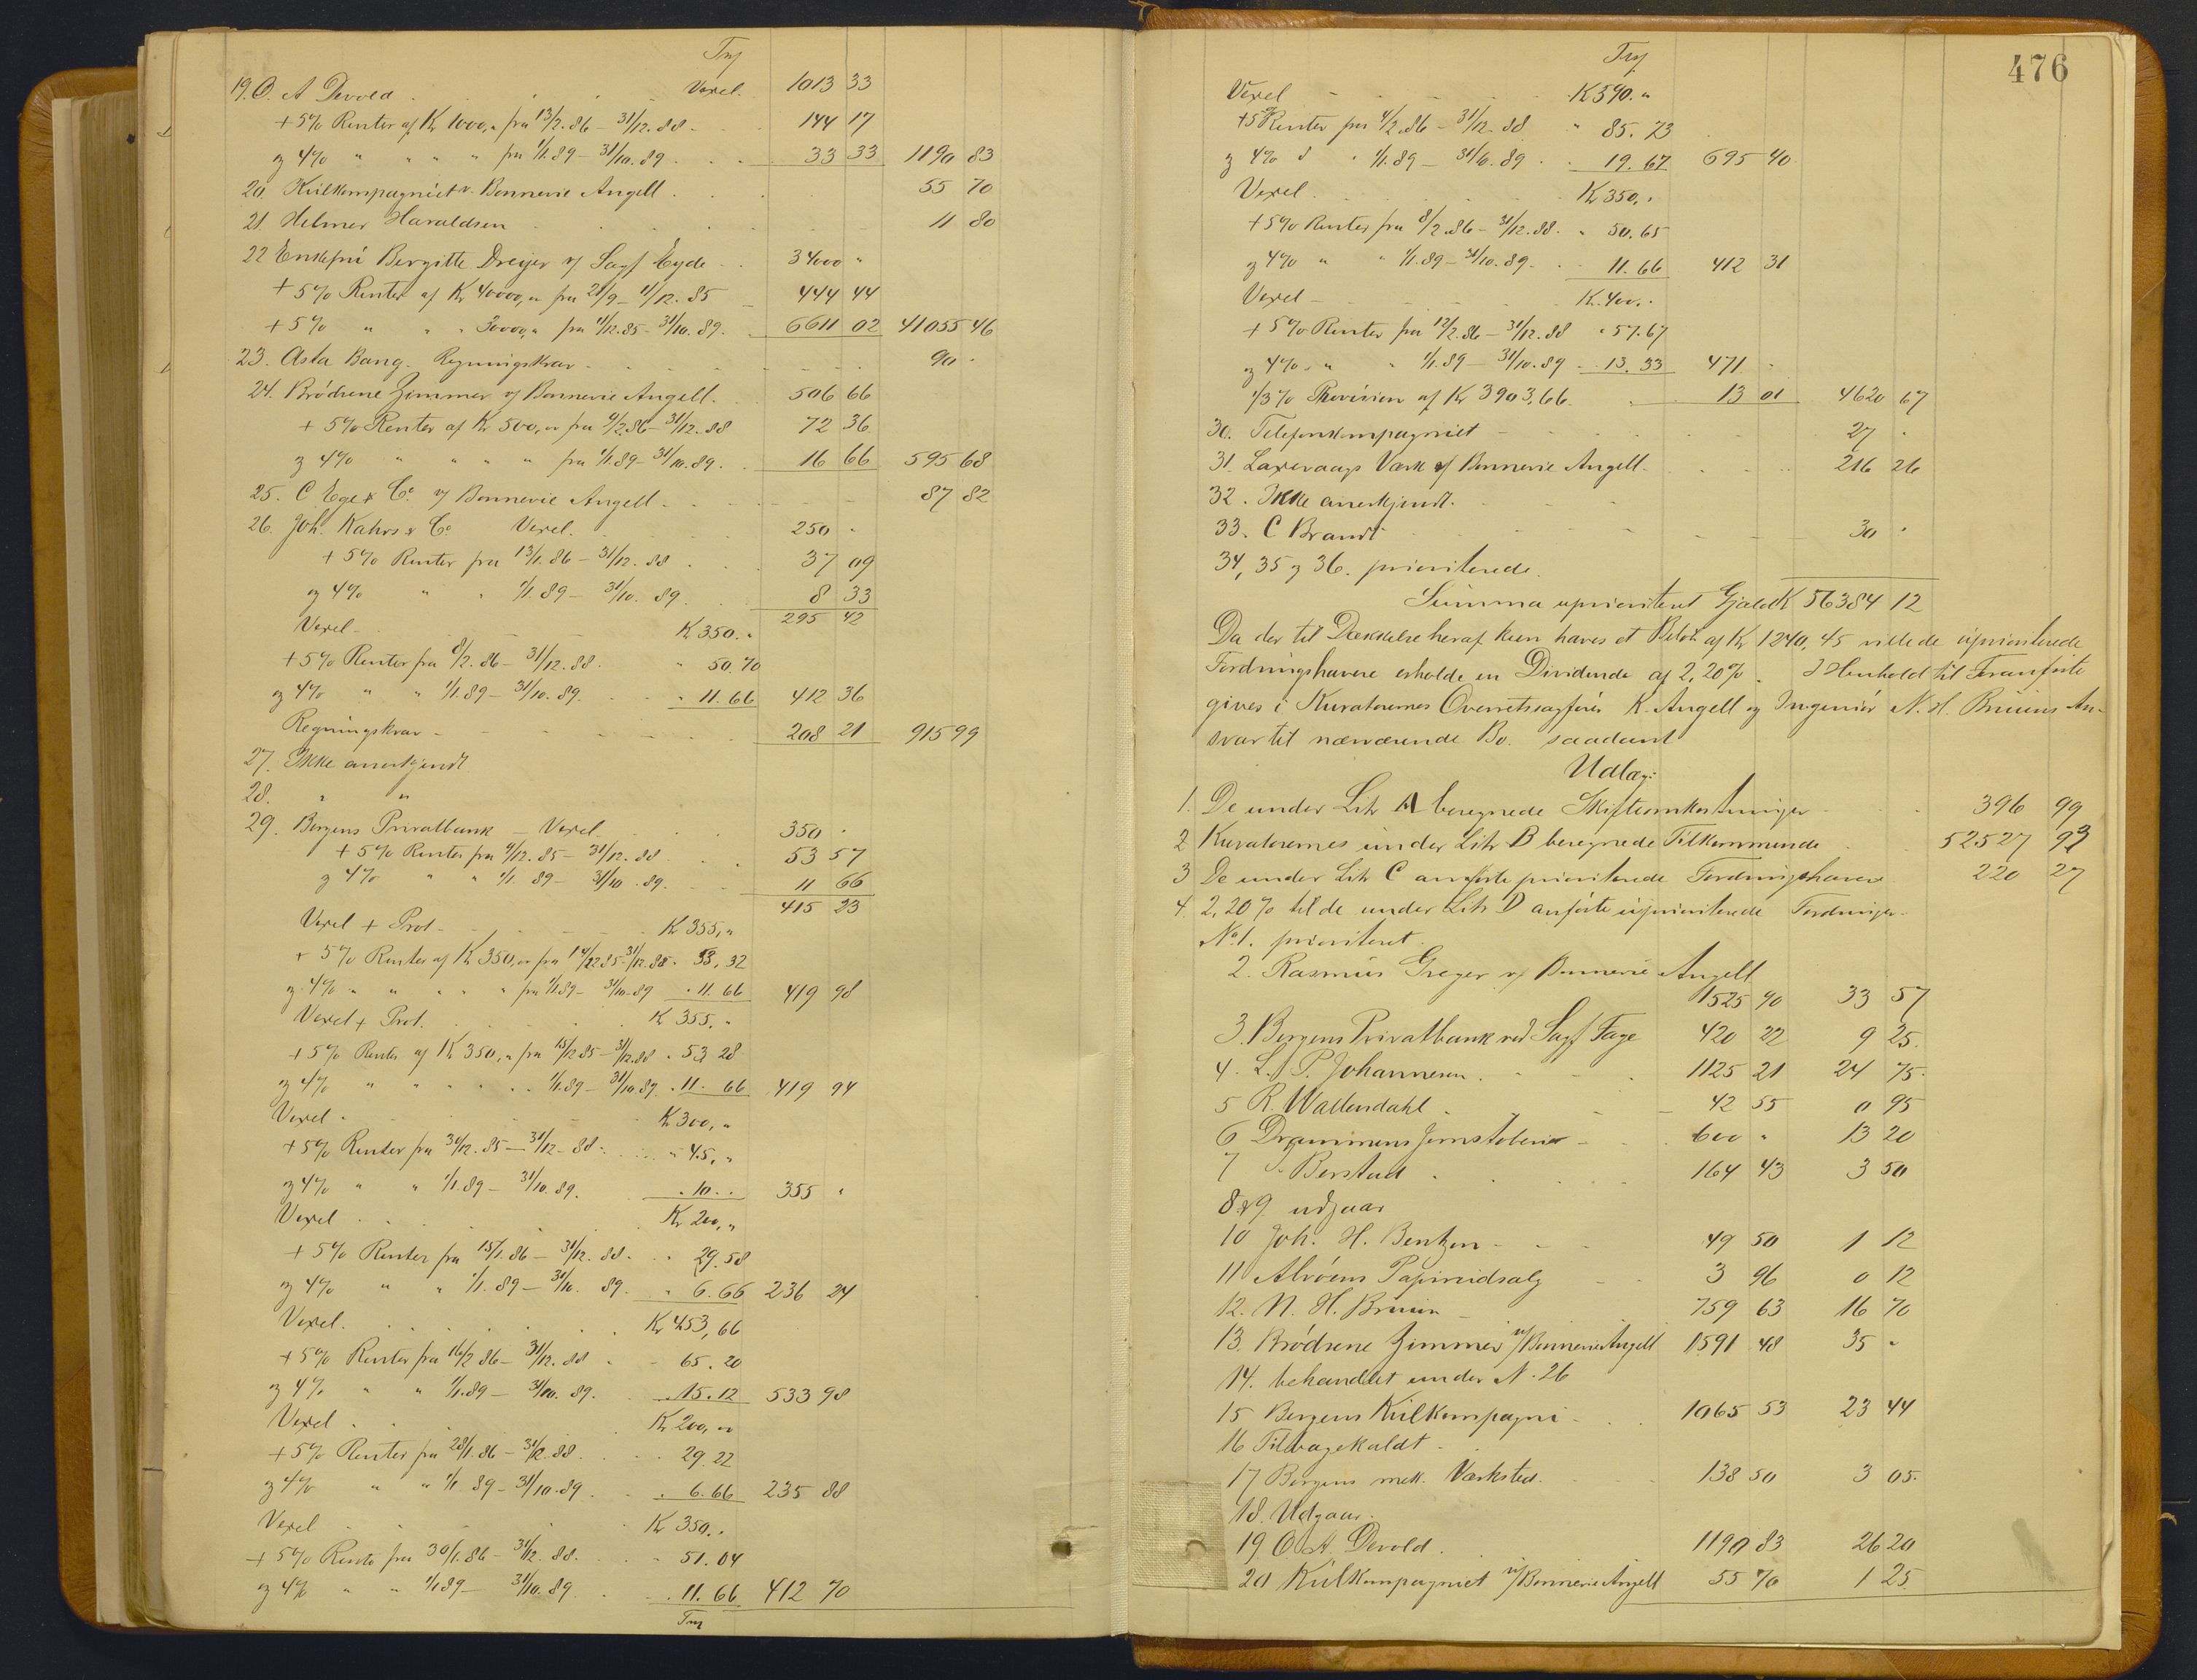 19. O. A Devold . . . Vexel. 1013 33
+ 5% Renter af Kr 1000,,, fra 13/2. 86 – 31/12. 88 – 144 17
og 4% " " " " fra 1/1. 89 – 31/10. 89 . . . 33 33 1190 83
20. Kulkompagniet v. Bonnevie Angell . . . 55 70
21. Helmer Haraldsen . . . 11 80
22 Enkefru Bergitte Dreyer v/ Sagf Eyde . . 34000 "
+ 5% Renter af Kr 40000,,, fra 21/9 – 11/12. 85 – 444 44
+ 5% " " " 30000,,, fra 11/12. 85 – 31/10. 89. – 6611 02 41055 46
23. Asta Bang. Regningskrav . . . 90 .
24. Brödrene Zimmer v/ Bonnevie Angell. 506 66
+ 5% Renter af Kr 500,,, fra 9/2. 86 – 31/12. 88 72 36
og 4% " " " " fra 1/1. 89 – 31/10. 89. . 16 66 595 68
25. C Ege & Co. v/ Bonnevie Angell . . . 87 82
26. Joh. Kahrs & Co Vexel. . . 250 .
+ 5% Renter fra 13/1. 86 – 31/12. 88 . . . 37 09
og 4% " " 1/1. 89 – 31/10. 89. 8 33
295 42
Vexel – . . . Kr 350. "
+ 5% Renter fra 8/2. 86 – 31/12. 88. " 50.70
og 4% " " 1/1. 89 – 31/10. 89. . . " 11. 66 412 36
Regningskrav – . . . 208 21 915 99
27. Ikke anerkjendt
28. " "
29. Bergens Privatbank – Vexel . . . 350 .
+ 5% Renter fra 9/12. 85 – 31/12. 88 . . . 53 57
og 4% " " 1/1. 89 – 31/10. 89. . . 11 66
415 23
Vexel + Prot. . . . Kr 355,,,
+ 5% Renter af Kr 350,,, fra 14/12 85 – 31/12. 88 . 53, 32
og 4% " " " " " fra 1/1. 89 – 31/10. 89 . 11. 66 419 98
Vexel + Prot. . . . Kr 355. "
+ 5% Renter af Kr 350,,, fra 15/12 85 – 31/12. 88 . 53 28
og 4% " " " " " 1/1. 89 – 31/10. 89 . 11. 66 419 94
Vexel . . . Kr 300,,,
+ 5% Renter fra 31/12. 85 – 31/12. 88 . . . " 45,,,
og 4% " " 1/1. 89 – 31/10. 89. . 10. . 355 "
Vexel . . . Kr 200,,,
+ 5% Renter fra 15/1. 86 – 31/12. 88 . . . 29. 58
og 4% " " 1/1. 89 – 31/10. 89. . " 6. 66 236 24
Vexel. . . . Kr 453, 66
+ 5% Renter fra 16/2 86 – 31/12. 88 . – 65. 20
og 4% " " 1/1. 89 – 31/10. 89. . . 15. 12 533 98
Vexel . . . Kr 200,,,
+ 5% Renter fra 28/1. 86 – 31/12. 88. . . . 29. 22
og 4% " " 1/1. 89 – 31/10. 89 . . . 6. 66 235 88
Vexel . . . Kr 350. .
+ 5% Rente fra 30/1. 86 – 31/12. 88. . . " 51. 04
og 4% " " 1/1 89 – 31/10. 89. . . . 11. 66 412 70
476
Vexel – . . . Kr 390. "
+ 5% Renter fra 4/2. 86 – 31/12. 88 " 85. 73
og 4% " " 1/1. 89 – 31/10. 89 . . . 19. 67 695 40
Vexel . . . Kr 350,,.
+ 5% Renter fra 8/2. 86 – 31/12. 88. " 50. 65
og 4% " " 1/1. 89 – 31/10. 89. . . 11. 66 412 31
Vexel – . . . Kr. 400. .
+ 5% Renter fra 12/2. 86 – 31/12. 88 " 57. 67
og 4% " " 1/1. 89 – 31/10. 89 – . 13. 33 471 "
1/3% Provision af Kr 3903,66. . 13 01 4620 67
30. Telefonkompagniet – . . . 27 "
31. Laxevaags Værk v/ Bonnevie Angell. . . . 216 26
32. Ikke anerkjendt.
33. C Brandt . . . 30 "
34, 35 og 36. prioriterede.
Summa uprioriteret Gjæld Kr 56384 12
Da der til Dækkelse heraf kun haves et Belöb af Kr 1240,45 ville de uprioriterede
Fordringshavere erholde en Dividende af 2,20%. I Henhold til Foranførte
gives i Kuratorernes Overretssagförer K. Angell og Ingeniör N. H. Bruuns An-
svar til nærværende Bo. saadant
Udlæg:
1. De under Litr A beregnede Skifteomkostninger . . . 396 99
2 Kuratorernes under Litr B beregnede Tilkommende . . 52527 93
3 De under Litr C anførte prioriterede Fordringshavere 220 27
4. 2,20% til de under Litr D anførte uprioriterede Fordringer.
No 1. prioriteret.
2. Rasmus Greger v/ Bonnevie Angell
1525 90 33 57
3. Bergens Privatbank ved Sagf Fage 420 22 9 25.
4. L. P. Johannesen . . . 1125 21 24 75.
5 R. Wallendahl . . . 42 55 0 95
6 Drammens Jernstøberi – . . 600 " 13 20
7 Berstad . . . 164 43 3 50
8 & 9 udgaar
10 Joh. H. Bentzen – . . 49 50 1 12
11 Alvöens Papirudsalg – 3 96 0 12
12. N. H. Bruun – 759 63 16 70
13. Brödrene Zimmer v/ Bonnevie Angell 1591 48 35 "
14. behandlet under N. 26
15 Bergens Kulkompagni – . . 1065 53 23 44
16 Tilbagekaldt.
17 Bergens mek. Værksted. . . . 138 50 3 05.
18. Udgaar.
19 O. A. Devold . . . 1190 83 26 20
20 Kulkompagniet v/ Bonnevie Angell 55 70 1 25